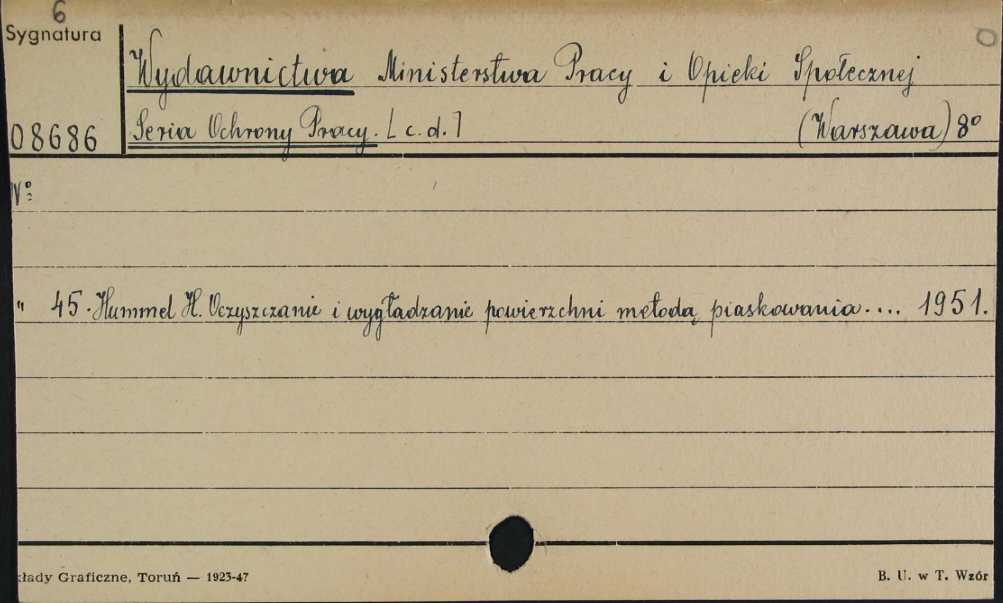 6
Sygnatura
Wydawnictwa Ministerstwa Pracy i Opieki Społecznej
08686
Seria Ochrony Pracy. [c.d.] (Warszawa) 8º
Nº
" 45. Hummel H. Oczyszczanie i wygładzanie powierzchni metodą piaskowania.... 1951.
kłady Graficzne, Toruń — 1923-47
B. U. w T. Wzór